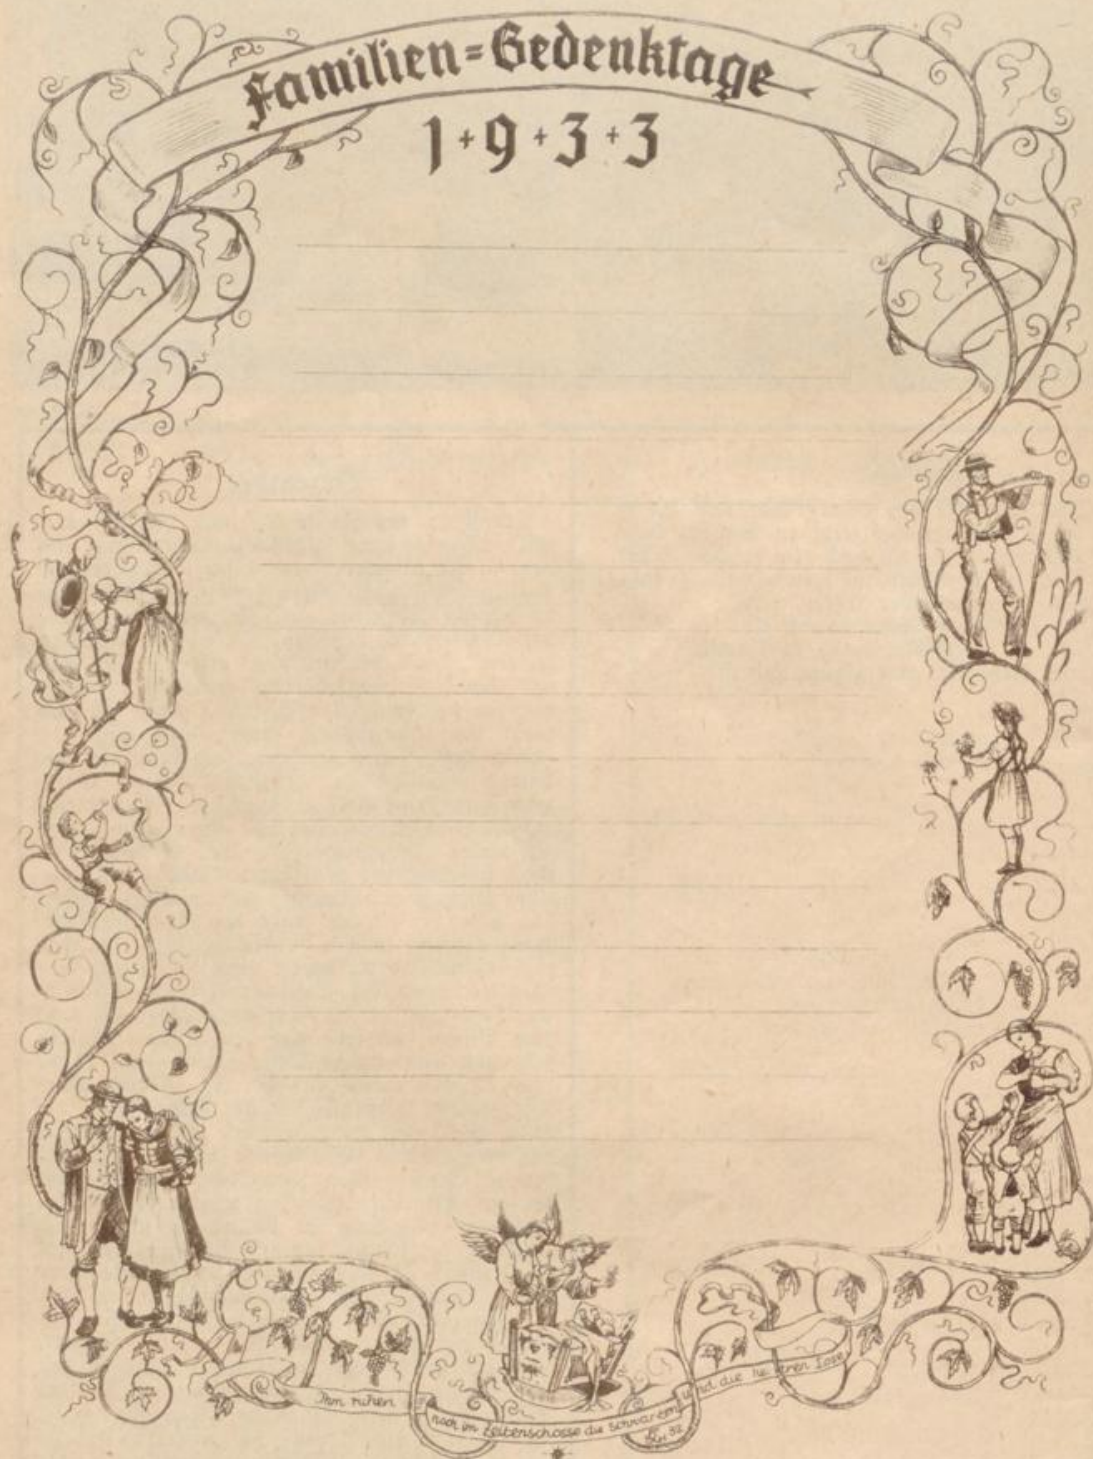 Familien=Gedenktage
1+9+3+3
Ihm ruhen noch im Zeitenschosse die schwarzen und die heitren Lose